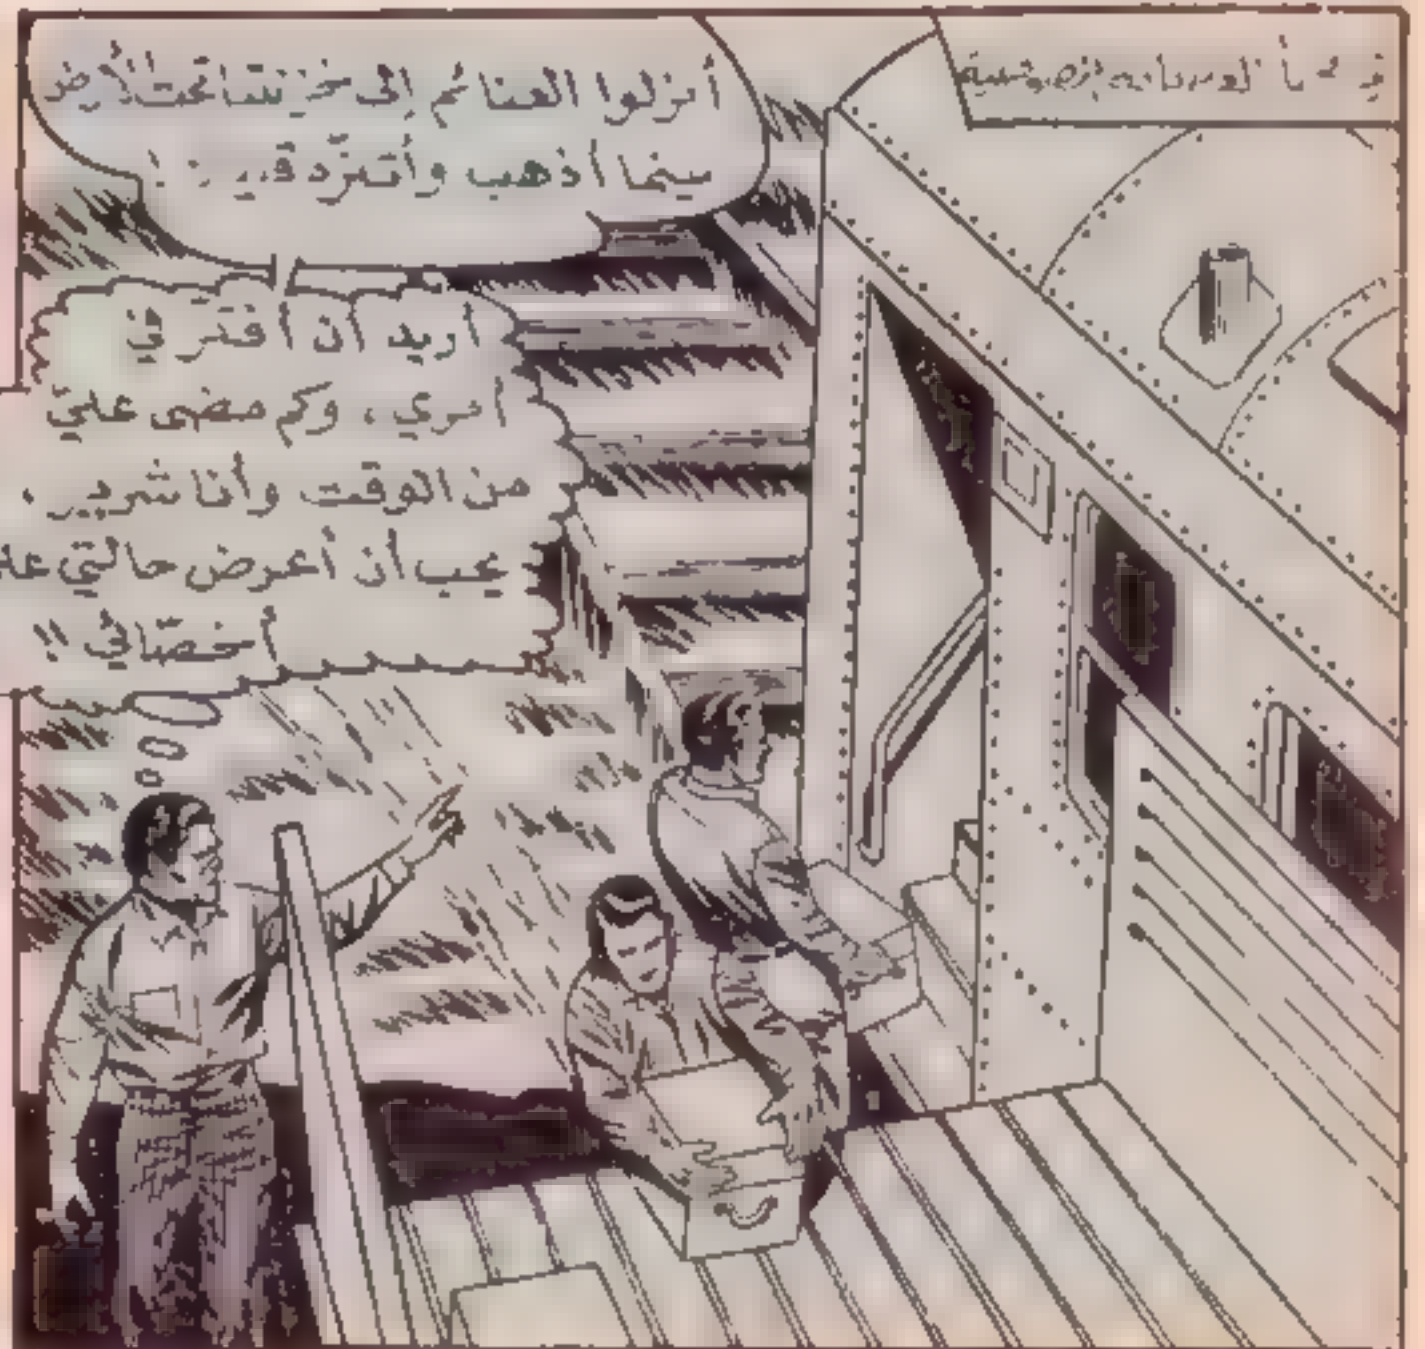 أنزلوا الغنائم إلى خزنتنا تحت الأرض
بينما أذهب وأتبرّد قـ
أريد أن أفكر في
أمري ، وكم مضى عليّ
من الوقت وأنا شرير .
يجب أن أعرض حالتي على
أخصّائي !!